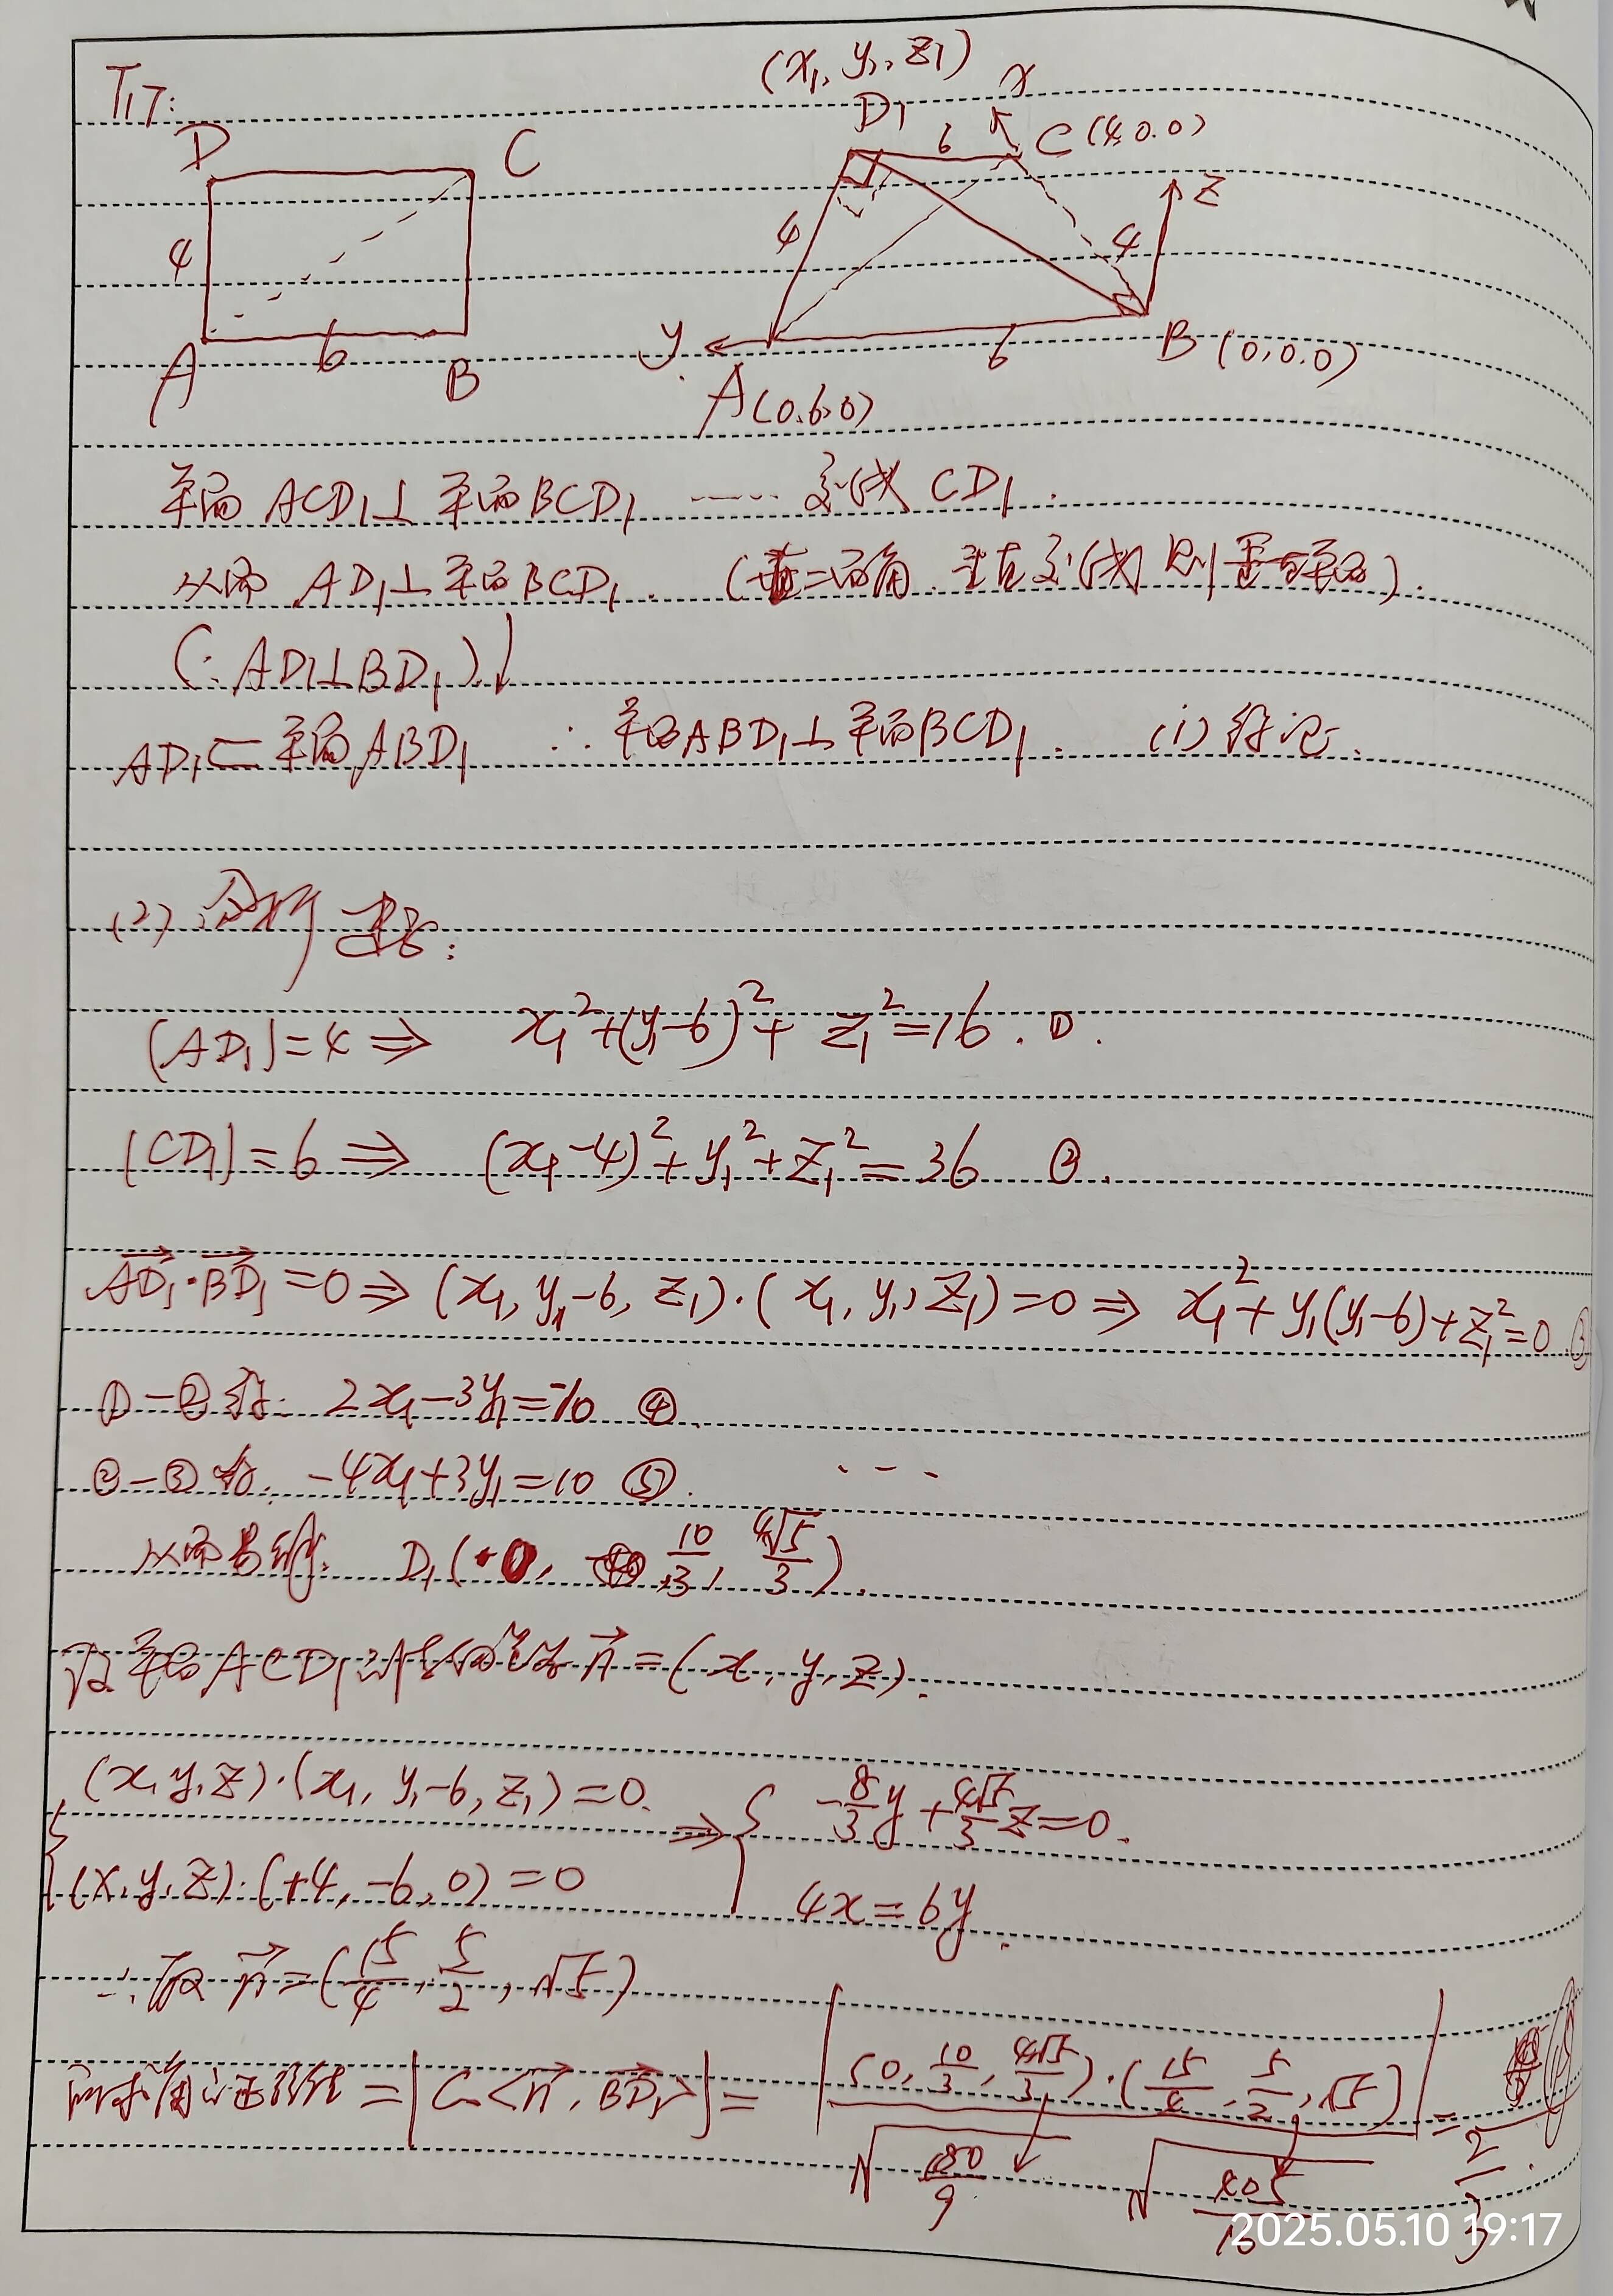 T17:
(x₁, y₁, z₁)
x
D C
D₁ 6 C (4,0,0)
z
4 4 4
y
A 6 B
A(0,6,0) 6 B (0,0,0)
平面 ACD₁⊥平面BCD₁ …… 交线 CD₁.
从而 AD₁⊥平面BCD₁.
(∵AD₁⊥BD₁)↓
AD₁⊂平面ABD₁ ∴平面ABD₁⊥平面BCD₁. (1)得论.
(2) 分析 建系:
|AD₁|=4 ⇒ x₁²+(y₁-6)²+z₁²=16. ①.
|CD₁|=6 ⇒ (x₁-4)²+y₁²+z₁²=36 ②.
AD₁·BD₁=0 ⇒ (x₁, y₁-6, z₁)·(x₁, y₁, z₁)=0 ⇒ x₁²+y₁(y₁-6)+z₁²=0 ③
①-②得: 2x₁-3y₁=-10 ④.
②-③得: -4x₁+3y₁=10 ⑤. ...
从而易得: D₁(0, 10/3, 4√5/3).
设平面ACD₁的法向量为n=(x, y, z).
(x,y,z)·(x₁, y₁-6, z₁)=0. ⇒ { -8/3y+4√5/3z=0.
(x,y,z)·(+4, -6, 0)=0 4x=6y.
∴取 n=(15/4, 5/2, √5)
所求角正弦值=|cos<n, BD₁>|=|(0, 10/3, 4√5/3)·(15/4, 5/2, √5)| / √(180/9) √(405/16) = 2/3.
2025.05.10 19:17